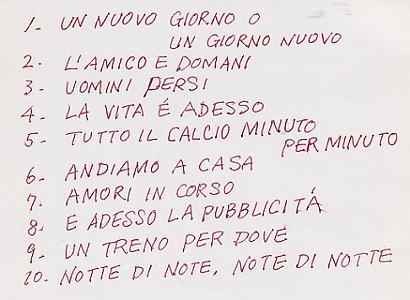 1- UN NUOVO GIORNO O
UN GIORNO NUOVO
2- L'AMICO E DOMANI
3- UOMINI PERSI
4- LA VITA É ADESSO
5- TUTTO IL CALCIO MINUTO
PER MINUTO
6- ANDIAMO A CASA
7- AMORI IN CORSO
8- E ADESSO LA PUBBLICITÁ
9- UN TRENO PER DOVE
10- NOTTE DI NOTE, NOTE DI NOTTE